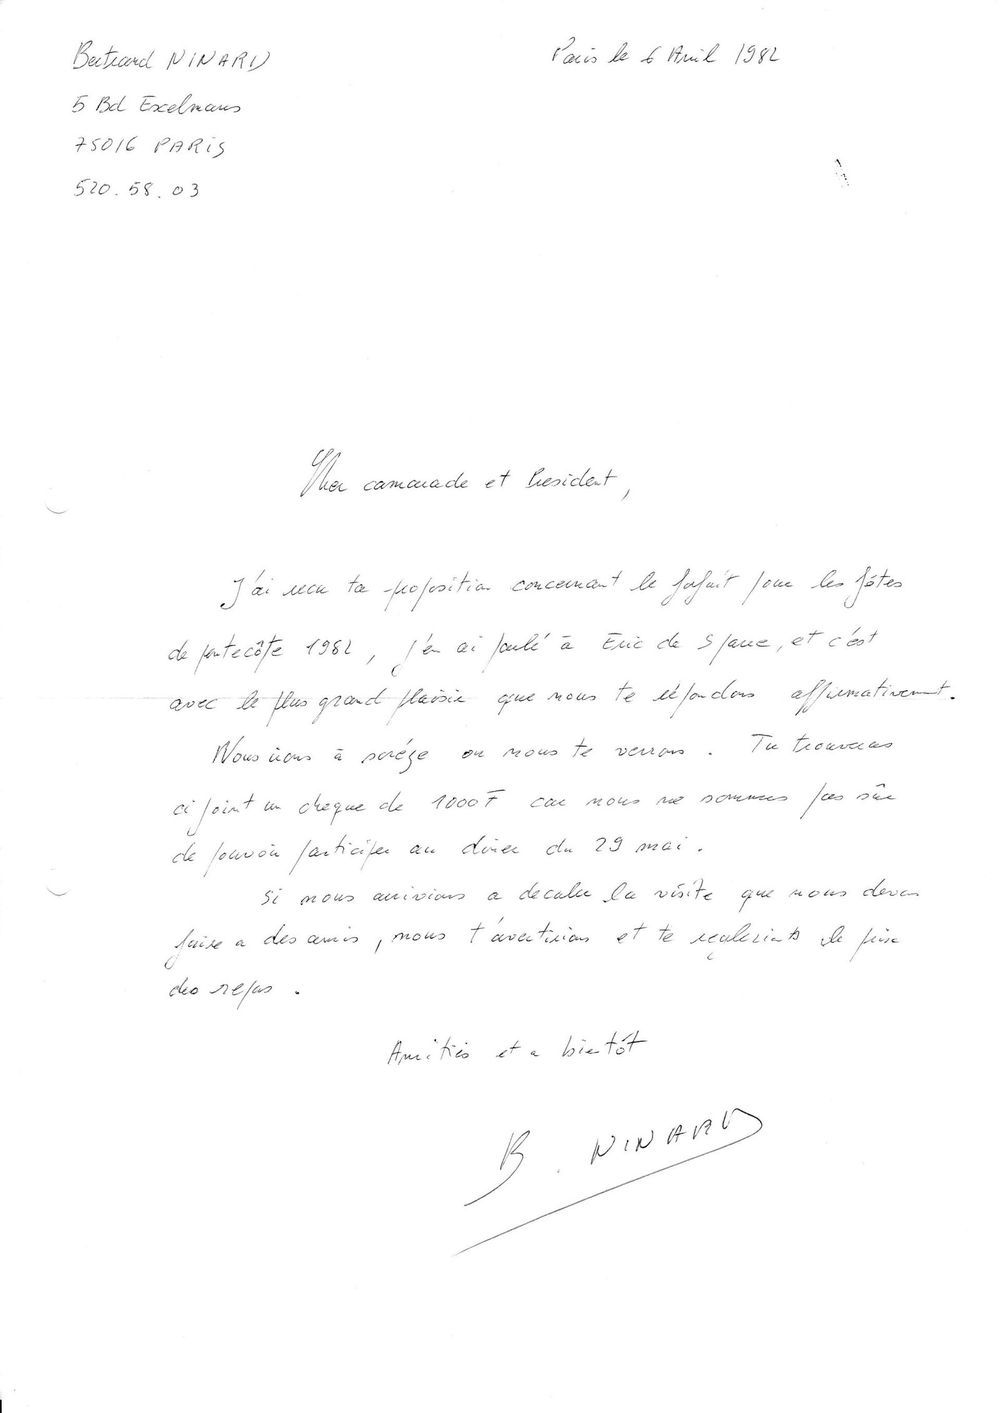 Bertrand NINARD
Paris le 6 Avril 1982
5 Bd Exelmans
75016 PARIS
520.58.03
Cher camarade et President,
J'ai recu ta proposition concernant le forfait pour les fêtes
de pentecôte 1982, j'en ai parlé à Eric de , et c'est
avec le plus grand plaisir que nous te répondons affirmativement.
Nous irons à sorèze ou nous te verrons. Tu trouveras
ci joint un cheque de 1000F car nous ne sommes pas sûr
de pouvoir participer au diner du 29 mai.
Si nous arrivions a decaler la visite que nous devons
faire a des amis, nous t'avertirions et te le prix
des repas.
Amitiés et a bientôt
B. NINARD